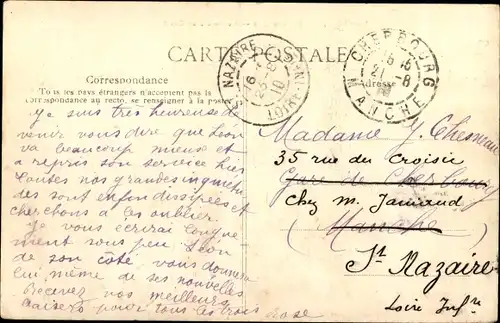 CARTE POSTALE
Correspondance
Tous les pays étrangers n'acceptent pas la
correspondance au recto, se renseigner à la poste
Adresse
ST NAZAIRE
LOIRE INF
16
10
CHERBOURG
MANCHE
16 15
21 - 8
Je suis très heureuse de
venir vous dire que Léon
va beaucoup mieux et
a repris son service hier
toutes nos grandes inquiétu
des sont enfin dissipées et
cherchons à les oublier.
Je vous écrirai longue
ment sous peu. Léon
de son côté vous donnera
lui même de ses nouvelles
Recevez nos meilleurs
baisers pour tous les trois
Rose
Madame J. Chesneau
35 rue du Croisic
Gare de Cherbourg
chez M. Jamaud
Manche
St Nazaire
Loire Infre